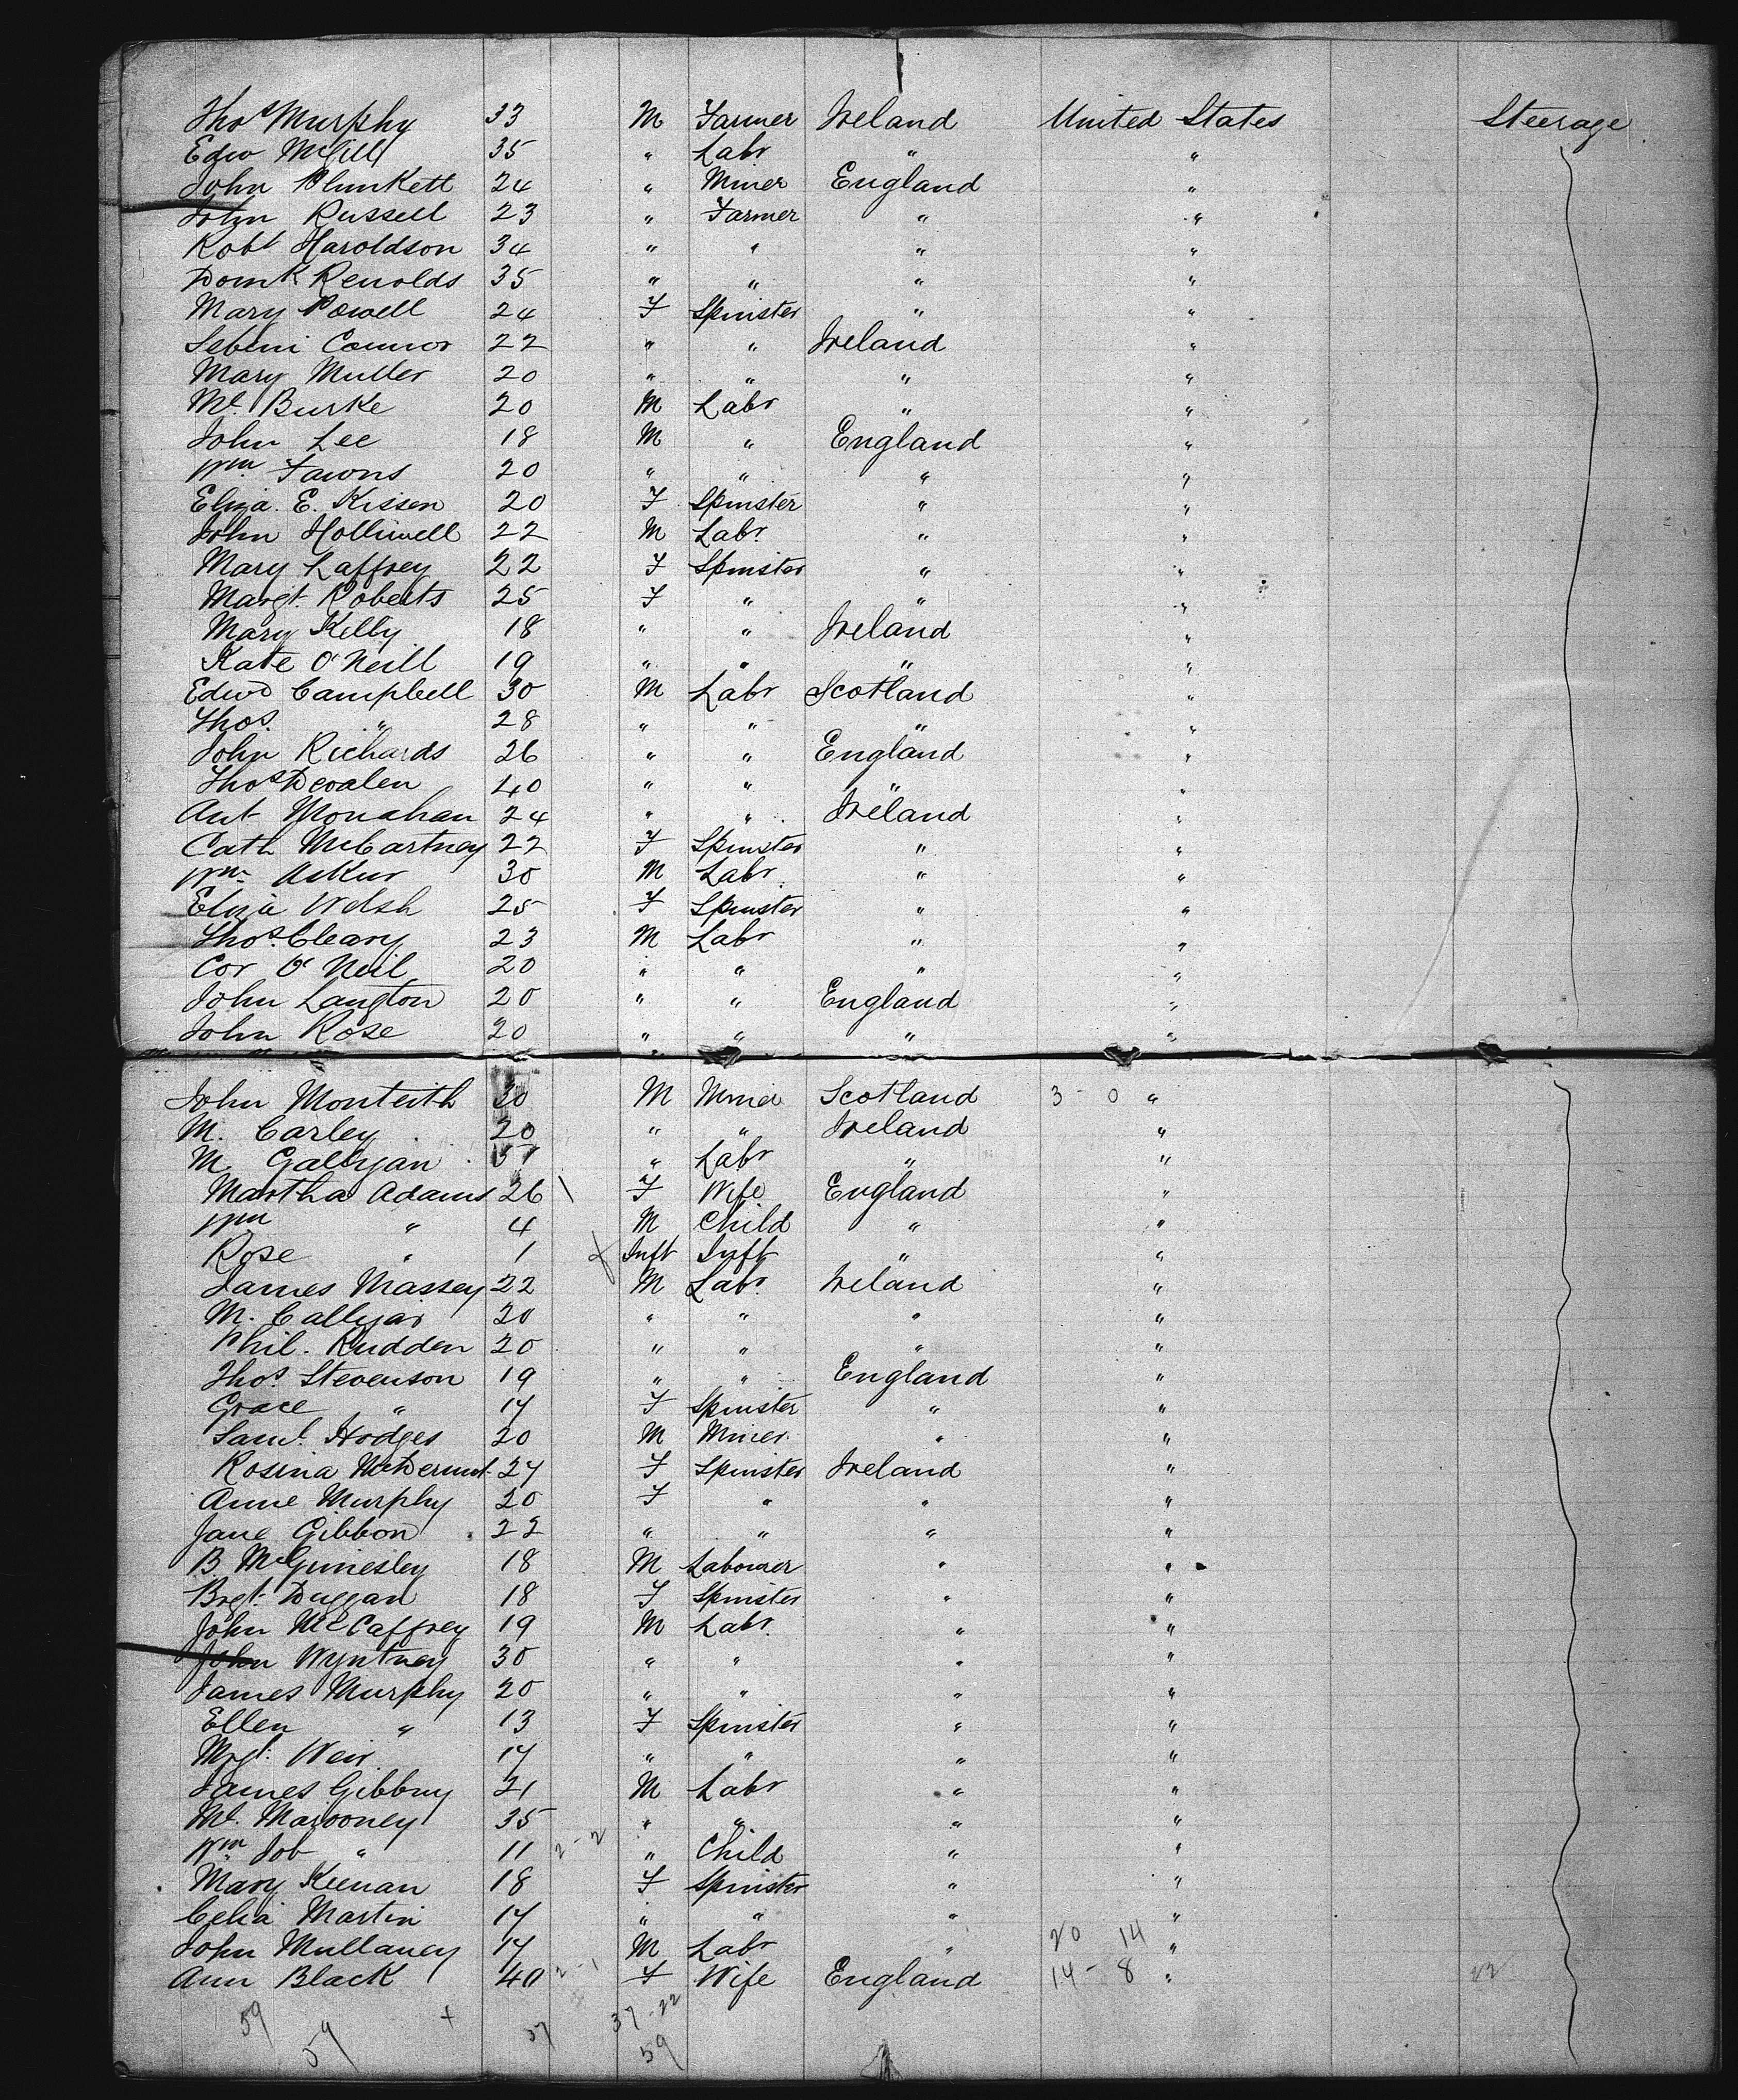 Thos Murphy 33 M Farmer Ireland United States Steerage
Edw McGill 35 " Labr " "
John Plunkett 24 " Miner England "
John Russell 23 " Farmer " "
Robt Haroldson 34 " " " "
Domk Renolds 35 " " " "
Mary Powell 24 F Spinster " "
Connor 22 " " Ireland "
Mary Muller 20 " " " "
Ml. Burke 20 M Labr " "
John Lee 18 M " England "
Wm Fawns 20 " " " "
Eliza. E. Kissen 20 F Spinster " "
John Holliwell 22 M Labr. " "
Mary Laffrey 22 F Spinster " "
Margt. Roberts 25 F " " "
Mary Kelly 18 " " Ireland "
Kate O'Neill 19 " " " "
Edwd Campbell 30 M Labr Scotland "
Thos. " 28 " " " "
John Richards 26 " " England "
Thos 40 " " " "
Ant Monahan 24 " " Ireland "
Cath McCartney 22 F Spinster " "
Wm. Askur 30 M Labr. " "
Eliza Welsh 25 F Spinster " "
Thos. Cleary 23 M Labr " "
Cor O'Neil 20 " " " "
John Langton 20 " " England "
John Rose 20 " " " "
John Monteith 30 M Miner Scotland 3 - 0 "
M. Carley 20 " " Ireland "
M. Gallygan " Labr " "
Martha Adams 26 \ F Wife England "
Wm " 4 M Child " "
Rose " 1 Inft Inft " "
James Massey 22 M Labr. Ireland "
M. 20 " " " "
Phil. Rudden 20 " " " "
Thos. Stevenson 19 " " England "
Grace " 17 F Spinster " "
Saml. Hodges 20 M Miner. " "
Rosina McDermot 27 F Spinster Ireland "
Anne Murphy 20 F " " "
Jane Gibbon 22 " " " "
B. McGinnesley 18 M Labourer " "
Brgt. Duggan 18 F Spinster " "
John McCaffrey 19 M Labr. " "
John Wyntney 30 " " " "
James Murphy 20 " " " "
Ellen " 13 F Spinster " "
Mrgt. Weir 17 " " " "
James Gibbny 21 M Labr " "
Ml. Marooney 35 " " " "
Wm. Job " 11 2-2 " Child " "
Mary Keenan 18 F Spinster " "
Celia Martin 17 " " " "
John Mullaney 17 M Labr " 20 14 "
Ann Black 40 2-1 F Wife England 14 - 8 " 22
59 + 37-22
59 57 59